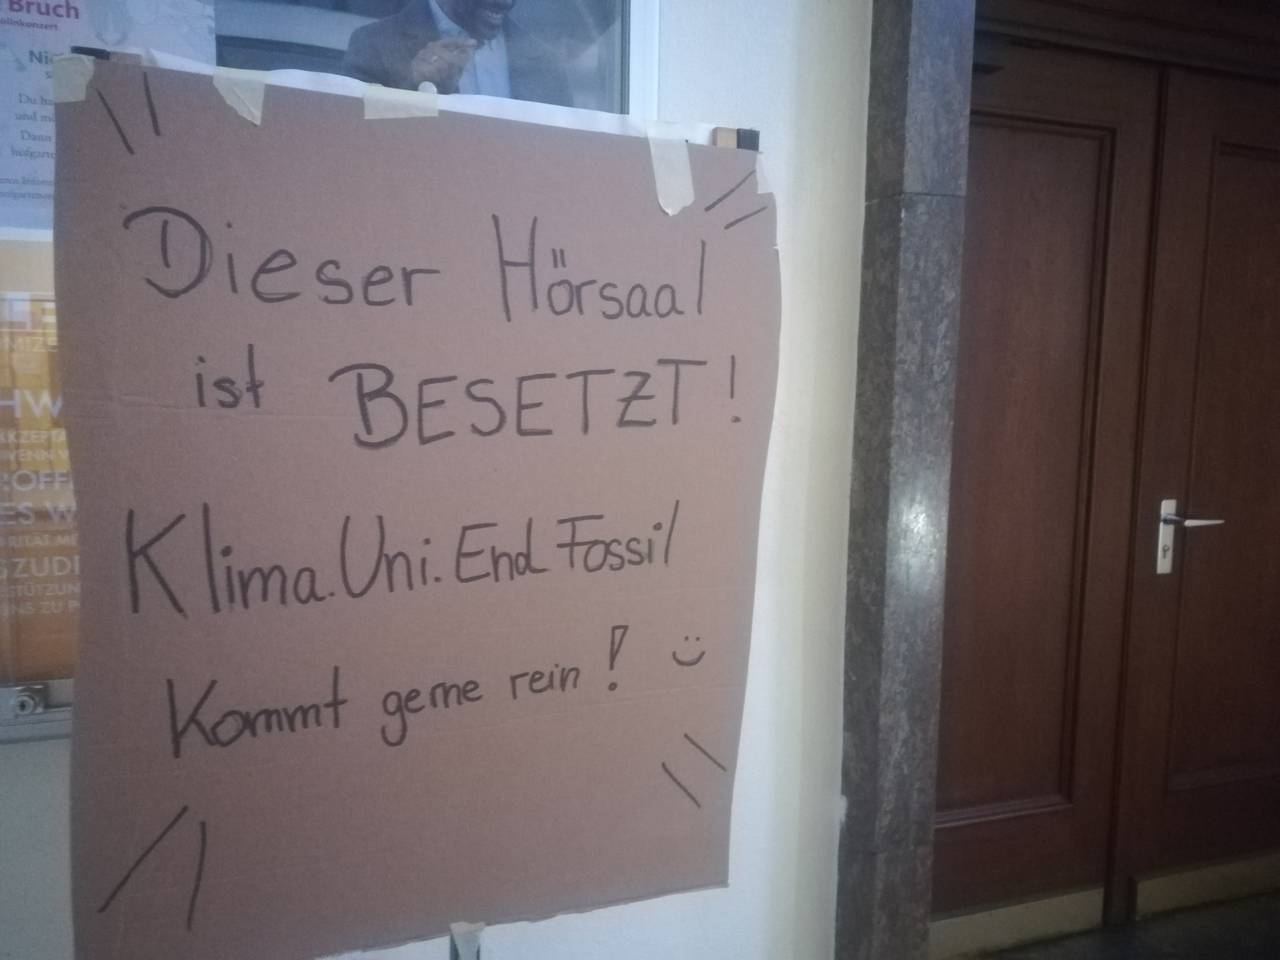 Bruch
Dieser Hörsaal
ist BESETZT!
Klima.Uni.End Fossil
Kommt gerne rein! :)